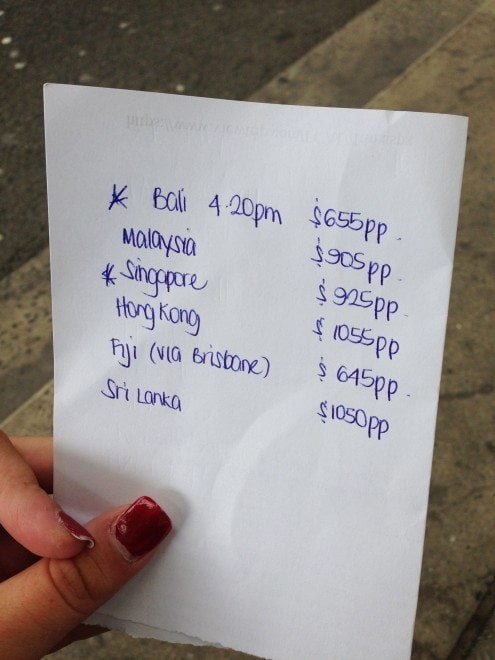 * Bali 4.20pm $655pp.
Malaysia $905pp.
* Singapore $925pp.
Hong Kong $1055pp
Fiji (via Brisbane) $645pp.
Sri Lanka $1050pp